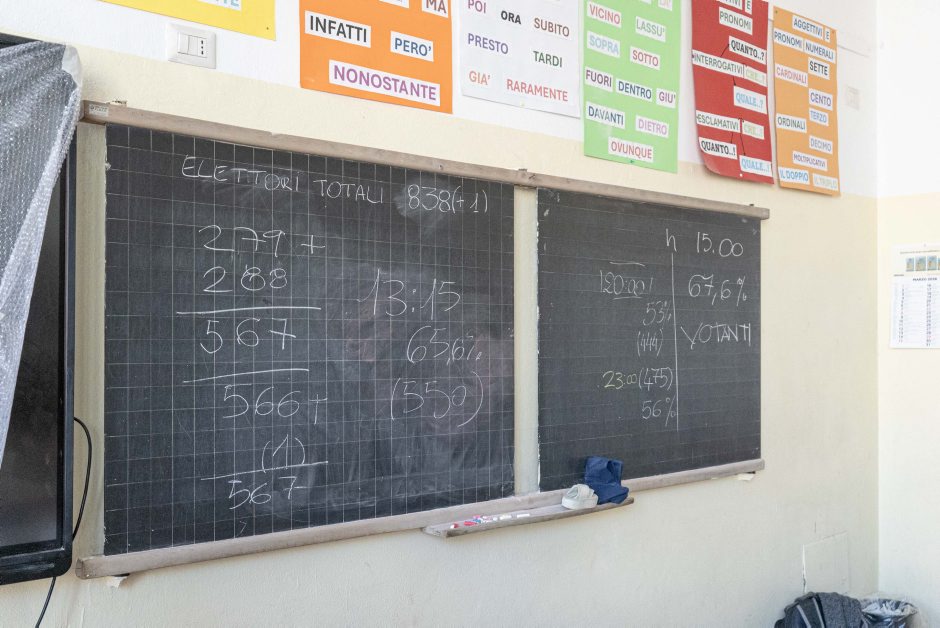 MA
INFATTI
PERO'
NONOSTANTE
POI ORA SUBITO
PRESTO TARDI
GIA' RARAMENTE
VICINO LASSU'
SOPRA SOTTO
FUORI DENTRO GIU'
DAVANTI DIETRO
OVUNQUE
PRONOMI
QUANTO..?
INTERROGATIVI CHE..?
QUALE..?
ESCLAMATIVI CHE..!
QUANTO..! QUALE..!
AGGETTIVI E
PRONOMI NUMERALI
SETTE
CARDINALI
CENTO
TERZO
ORDINALI
DECIMO
MOLTIPLICATIVI
IL DOPPIO IL TRIPLO
ELETTORI TOTALI 838(+1)
279 +
288
567
566 +
(1)
567
13:15
65,6%
(550)
h 15.00
67,6%
VOTANTI
120:00!
53%
(444)
23:00 (475)
56%
MARZO 2026